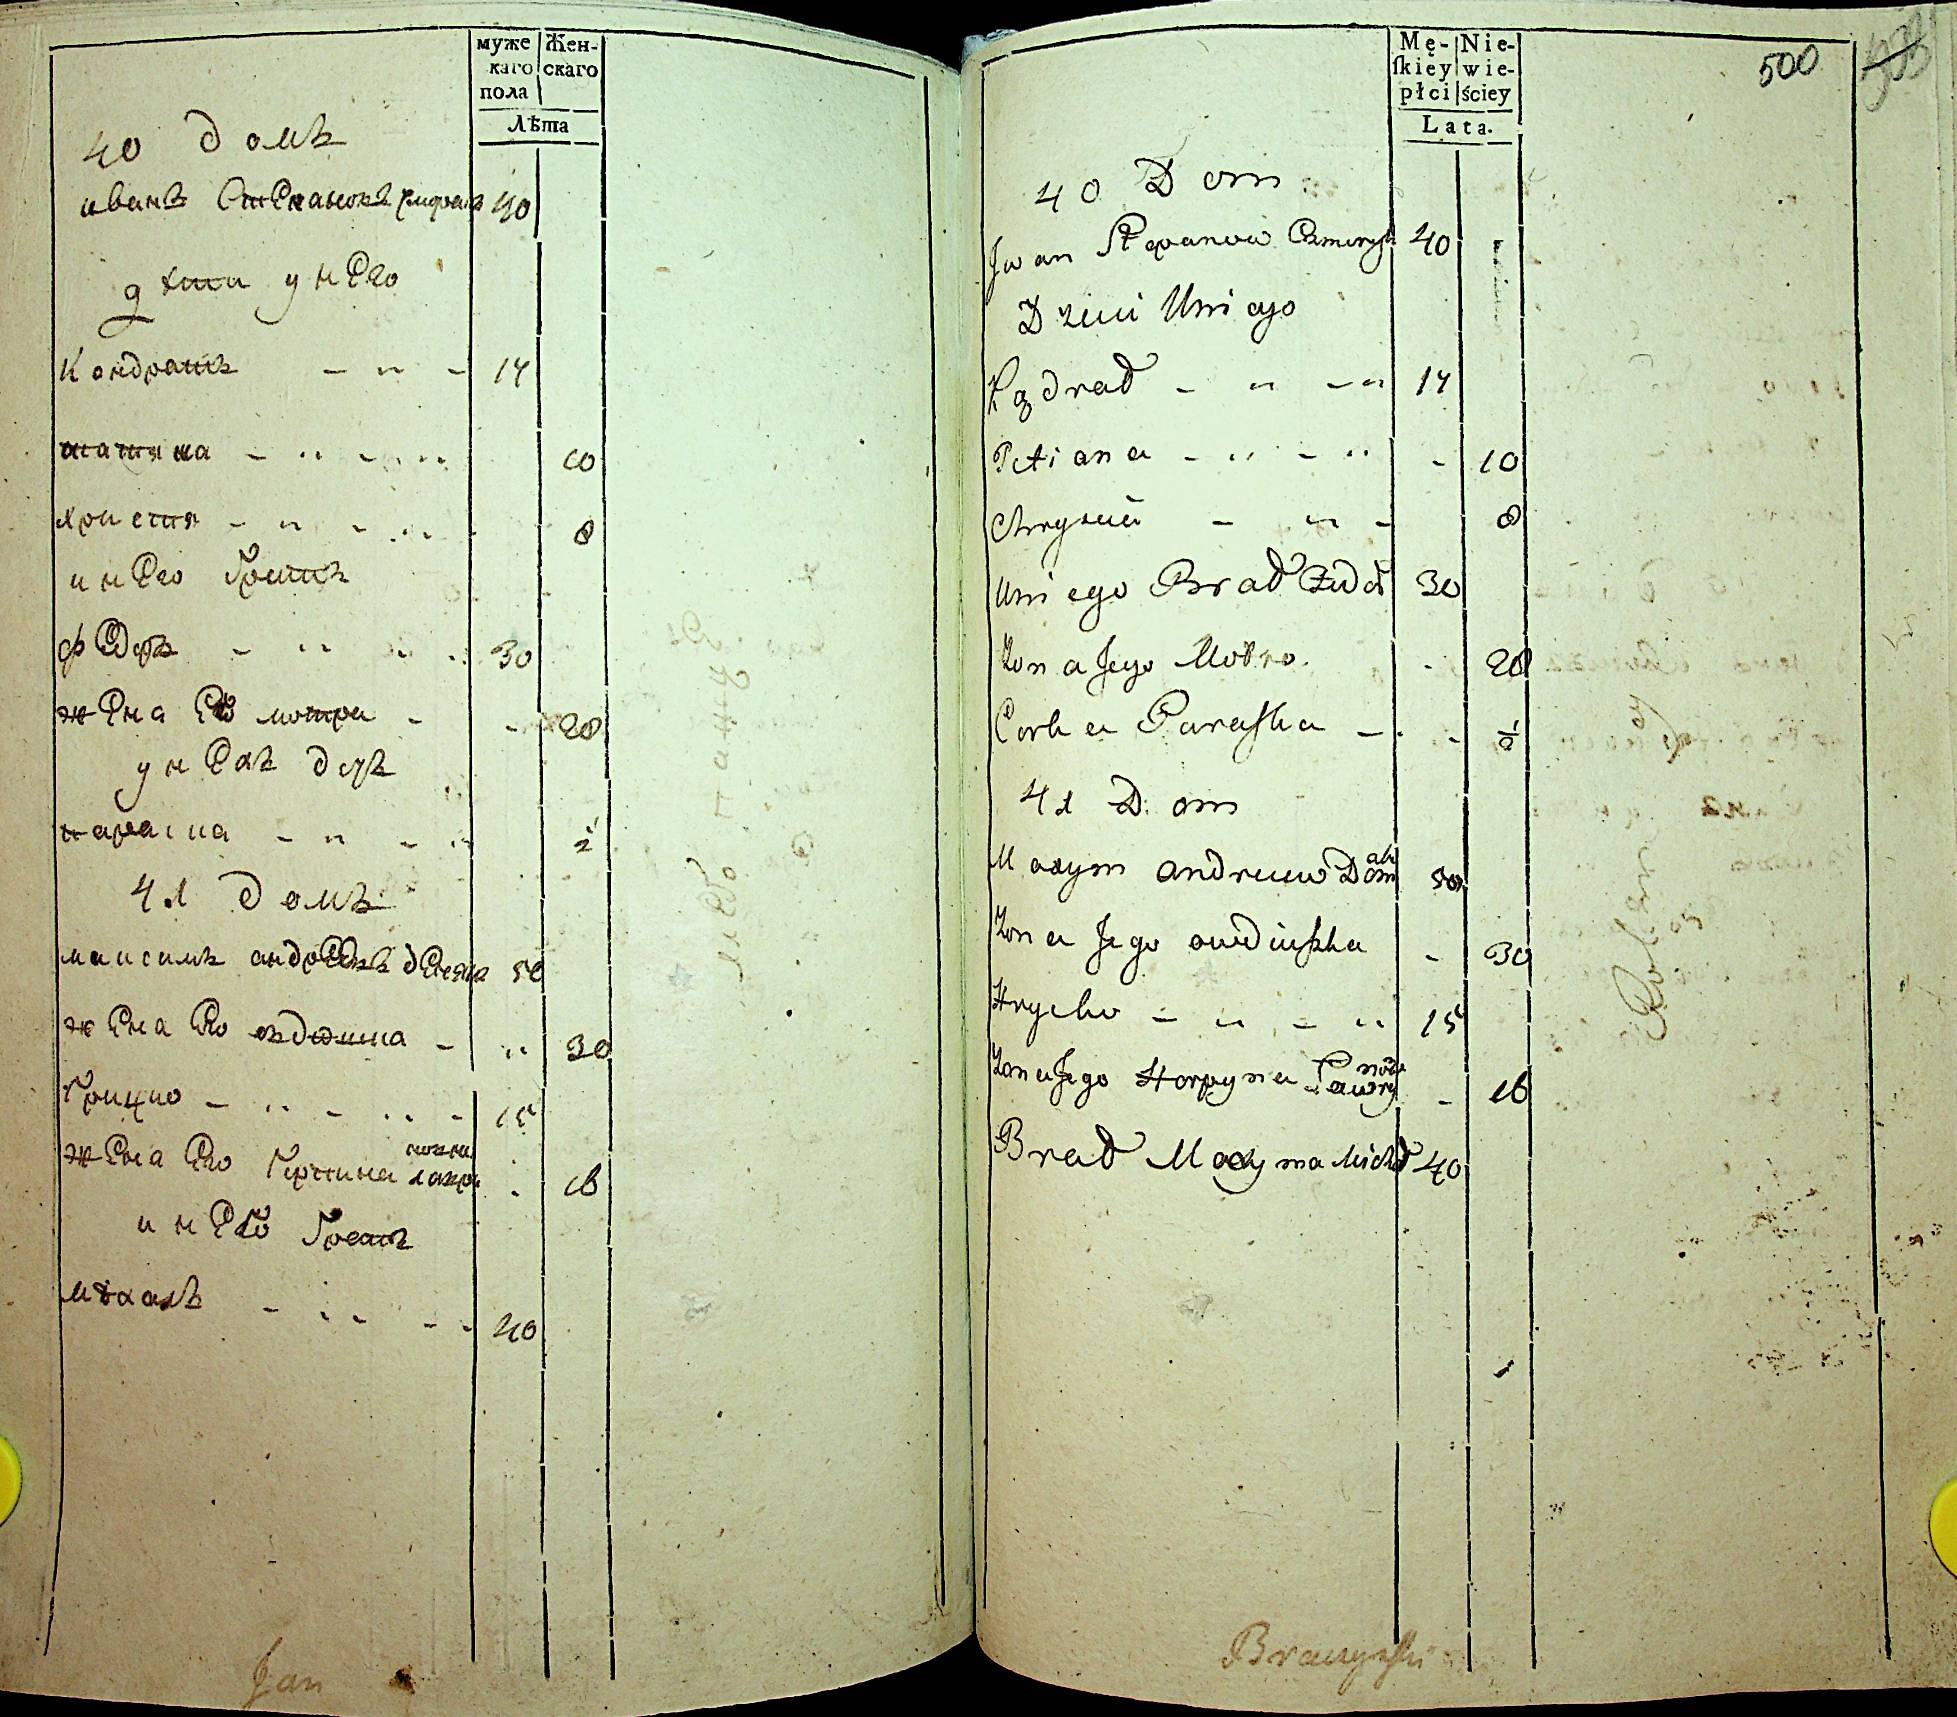 муже Жен-
каго скаго
пола
Лѣта
40 домъ
иванъ Степановъ 40
дѣти унего
Кондратъ - " - 14
татяна - " - " 10
христя - " - " 8
инего братъ
федоръ - " - " 30
жена его мотра - - 28
унехъ дочь
параска - " - " ½
41 домъ
максимъ андреевъ 50
жена его овдюшка - " 30
Грицко - " - " - 15
жена его Горпина 16
инего братъ
михалъ - " - - 40
Jan
Mę- Nie-
ſkiey wie-
płci ściey
Lata.
500
40 Dom
Jwan Stepanow 40
Dzieci Uniego
Kądrad - " - " 14
Tetiana - " - " - 10
Chrysia - " - 8
Uniego Brad Fedor 30
Zona Jego Motra - 28
Corka Paraſka - - ½
41 Dom
Maxym andreiew 50
Zona Jego owdiuſzka - 30
Hrycko - " - " 15
Zona Jego Horpyna - 16
Brad Maxyma Michał 40